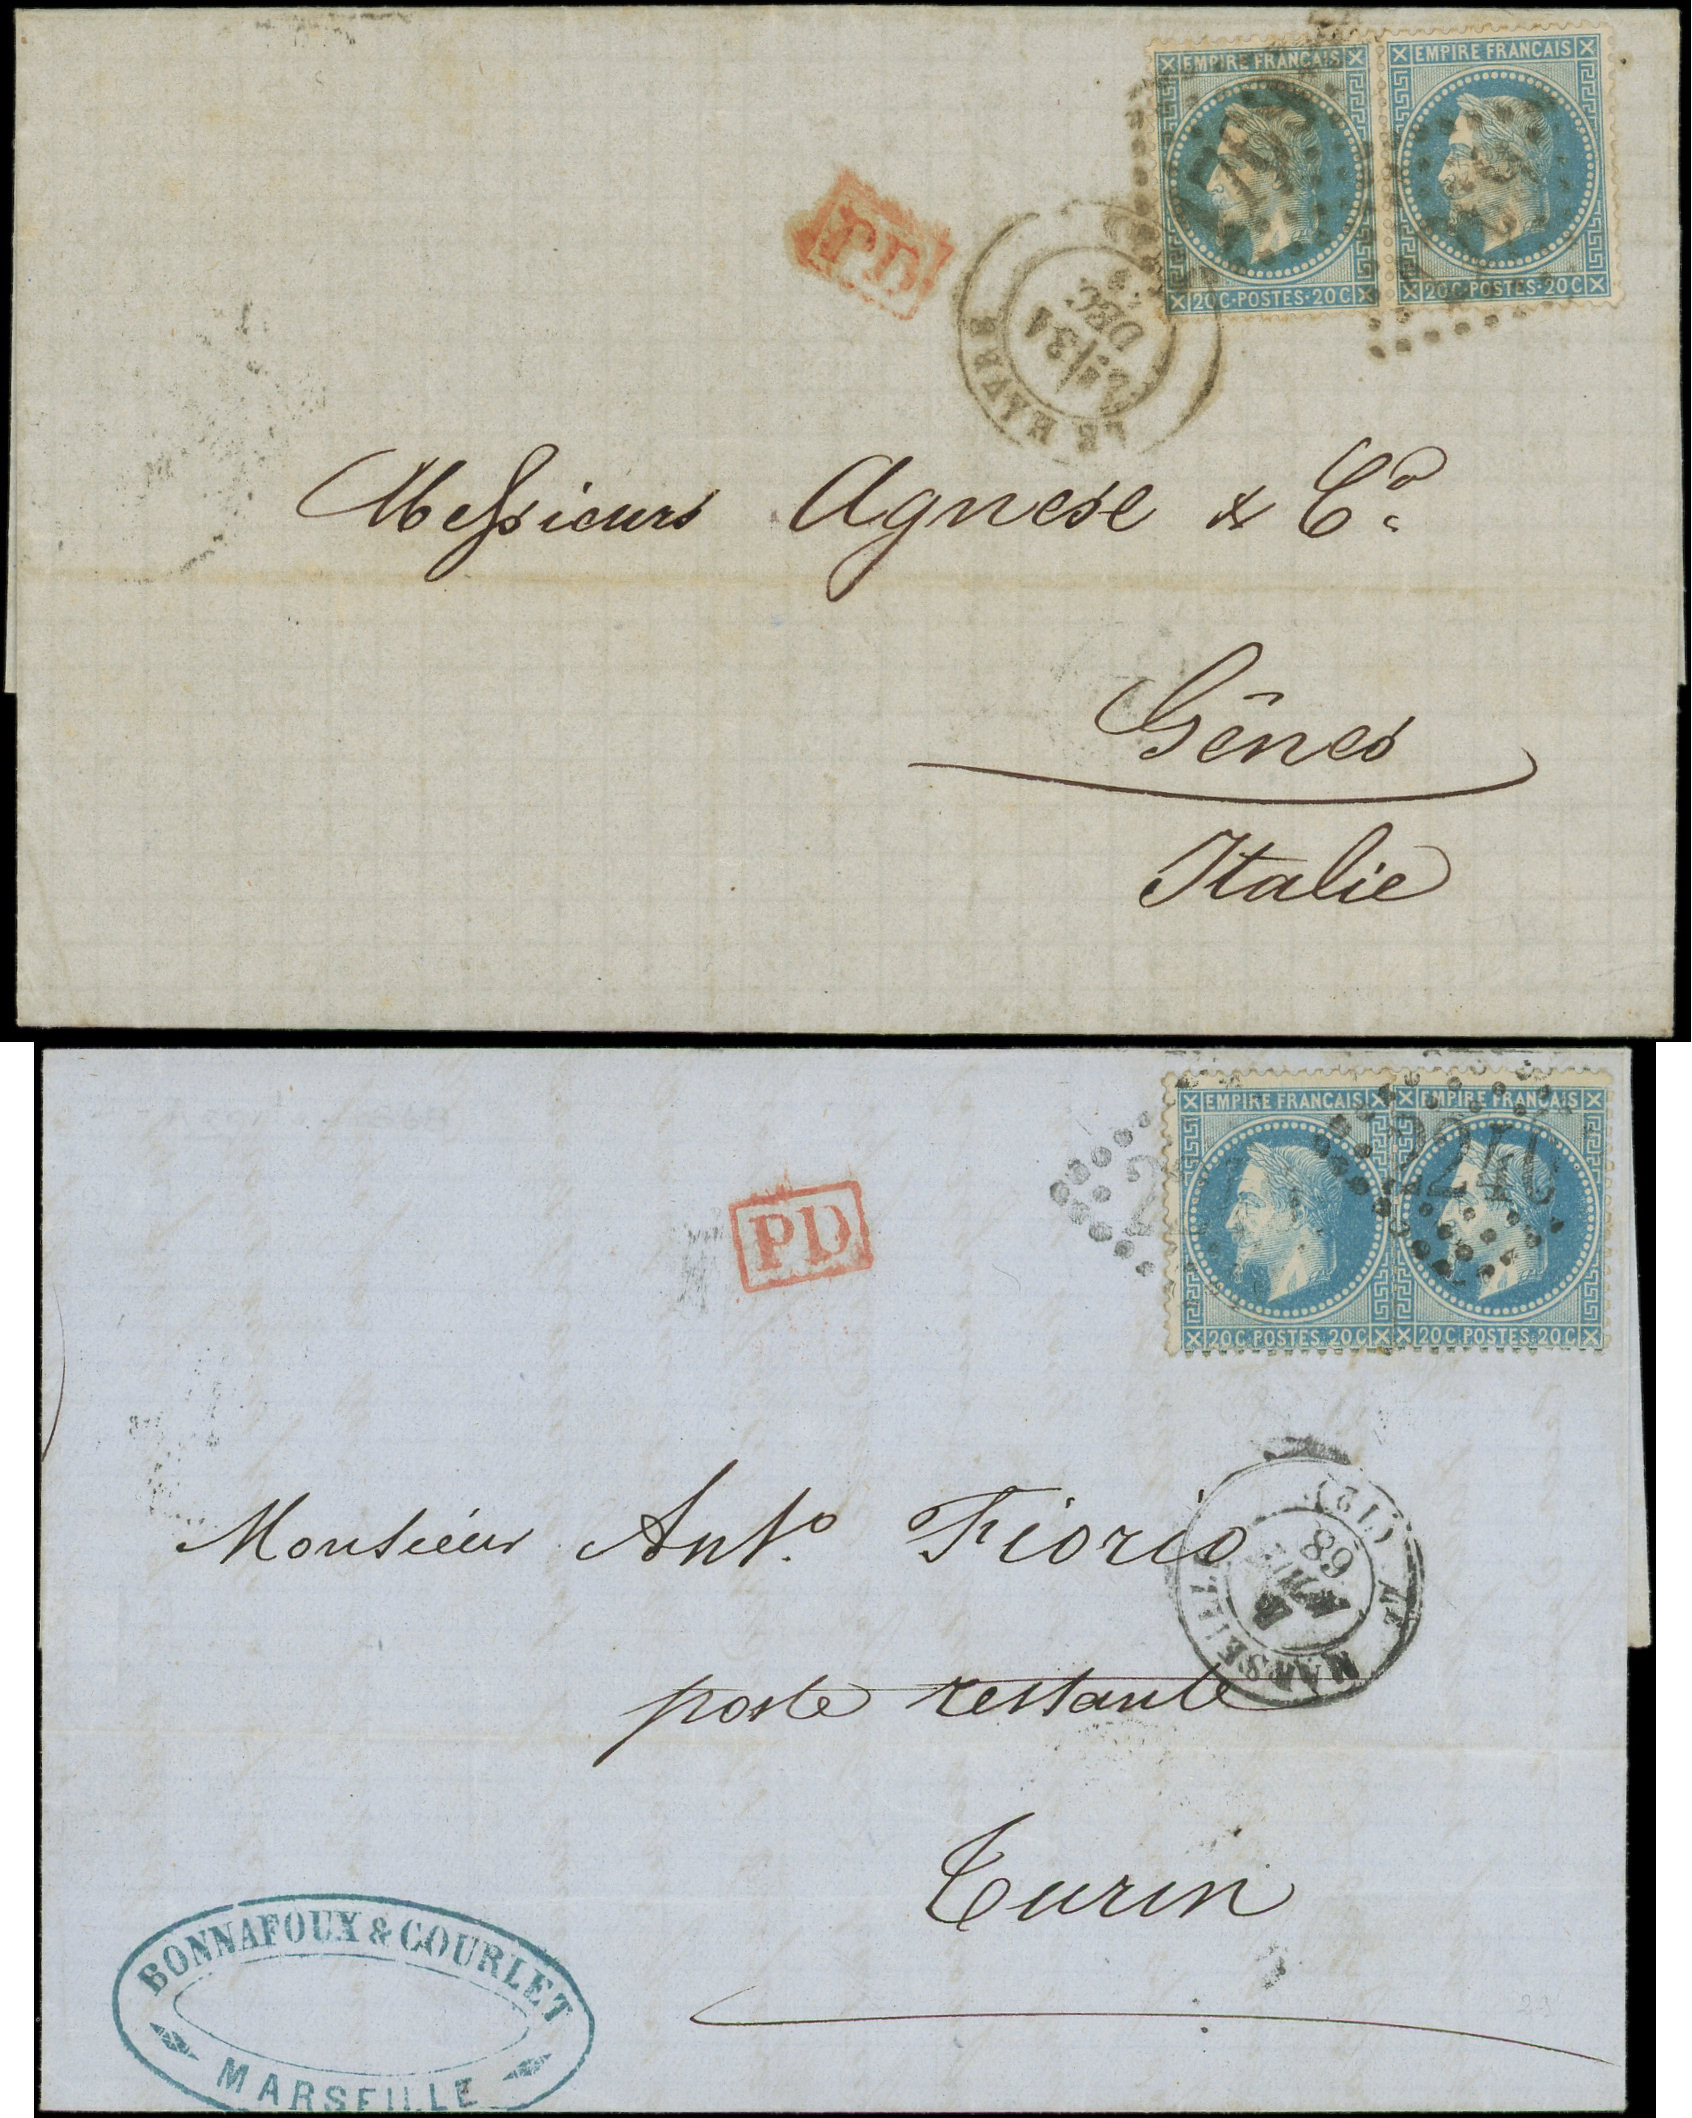 EMPIRE FRANÇAIS EMPIRE FRANÇAIS
20C·POSTES·20C 20C·POSTES·20C
PD
LE HAVRE
31
DEC
Messieurs Agnese & Co
Gênes
Italie
EMPIRE FRANÇAIS EMPIRE FRANÇAIS
2240
20C·POSTES·20C 20C·POSTES·20C
PD
MARSEILLE (12)
68
Monsieur Anto. Fiorio
poste restante
Turin
BONNAFOUX & COURLET
MARSEILLE